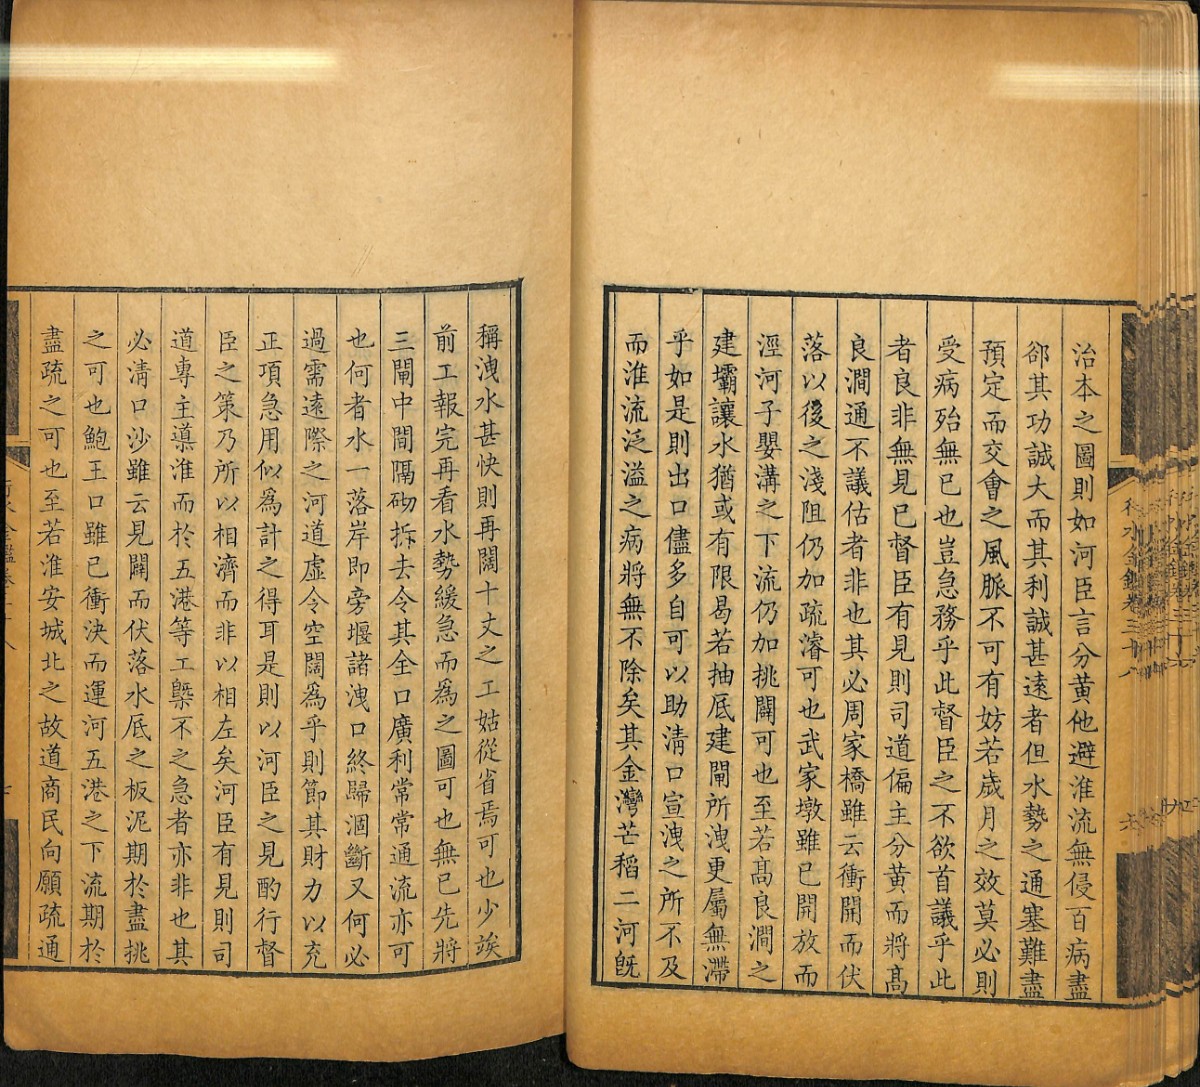 治本之圖則如河臣言分黃他避淮流無侵百病盡
郤其功誠大而其利誠甚遠者但水勢之通塞難盡
預定而交會之風脈不可有妨若歲月之效莫必則
受病殆無已也豈急務乎此督臣之不欲首議乎此
者良非無見已督臣有見則司道偏主分黃而將髙
良澗通不議估者非也其必周家橋雖云衝開而伏
落以後之淺阻仍加疏濬可也武家墩雖已開放而
涇河子嬰溝之下流仍加挑闢可也至若髙良澗之
建壩讓水猶或有限曷若抽底建閘所洩更屬無滯
乎如是則出口儘多自可以助淸口宣洩之所不及
而淮流泛溢之病將無不除矣其金灣芒稻二河旣
稱洩水甚快則再闊十丈之工姑從省焉可也少竢
前工報完再看水勢緩急而為之圖可也無已先將
三閘中間隔砌拆去令其全口廣利常常通流亦可
也何者水一落岸即旁堰諸洩口終歸涸斷又何必
過需遠際之河道虛令空闊為乎則節其財力以充
正項急用似為計之得耳是則以河臣之見酌行督
臣之策乃所以相濟而非以相左矣河臣有見則司
道專主導淮而於五港等工槩不之急者亦非也其
必淸口沙雖云見闢而伏落水厎之板泥期於盡挑
之可也鮑王口雖已衝決而運河五港之下流期於
盡疏之可也至若淮安城北之故道商民向願疏通
行水金鑑卷三十八